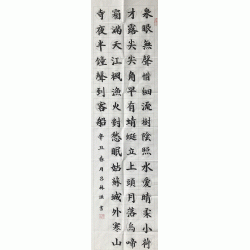 泉眼無聲惜細流樹陰照水愛晴柔小荷
才露尖尖角早有蜻蜓立上頭月落烏啼
霜滿天江楓漁火對愁眠姑蘇城外寒山
寺夜半鐘聲到客船 辛丑春月呂林書